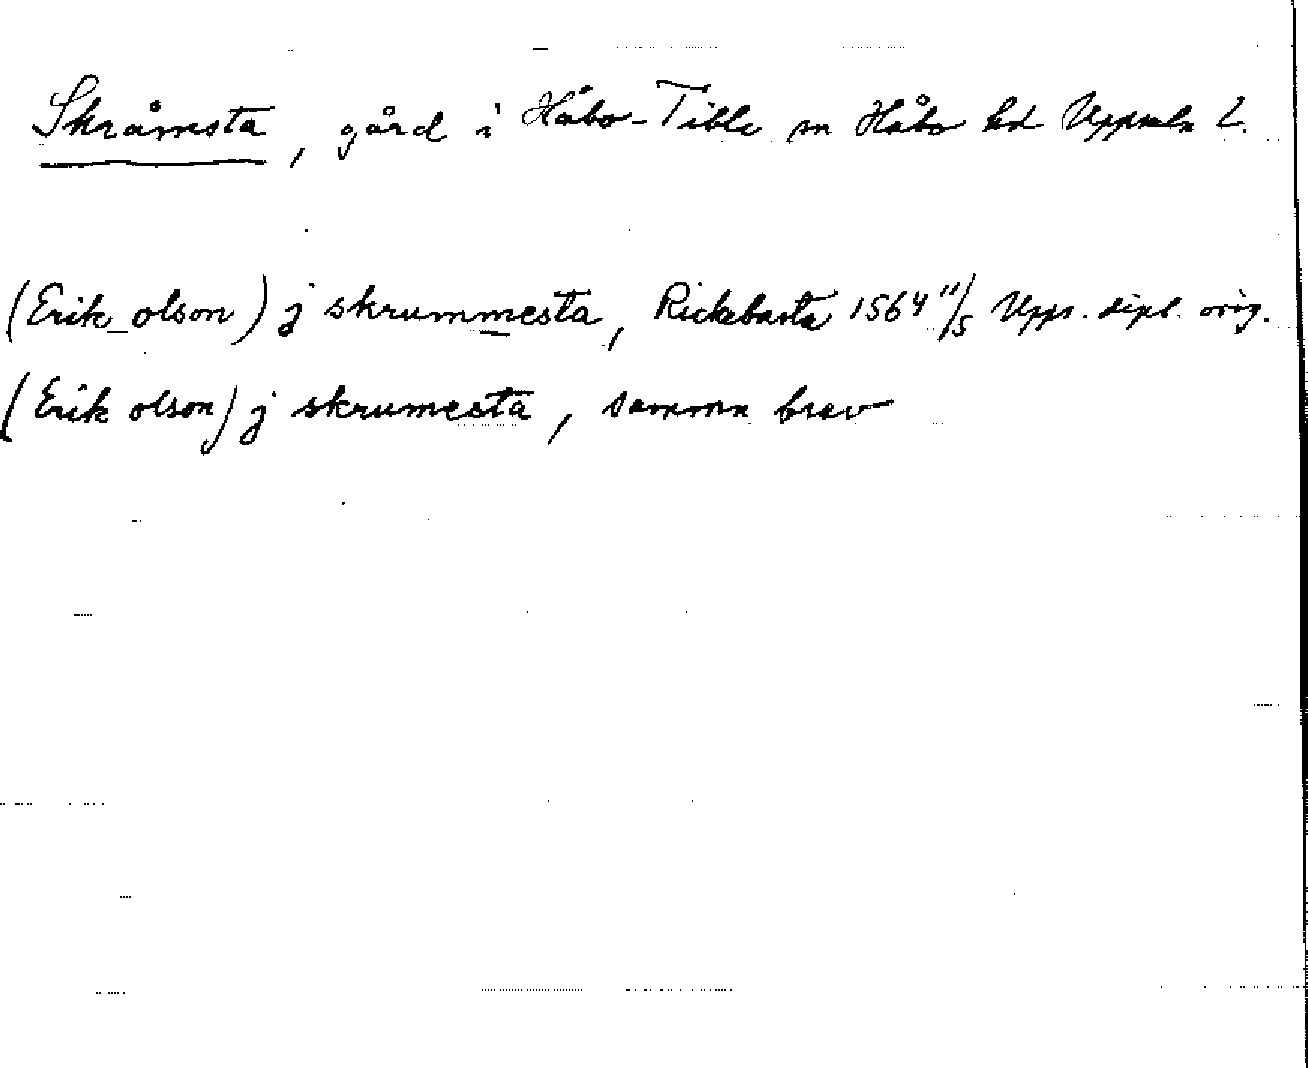 Skråmsta, gård i Håbo-Tibble sn Håbo hd Uppsala l.
(Erik olson) j skrummesta, Rickebasta 1564 11/5 Upps. dipl. orig.
(Erik olson) j skrumesta, samma brev